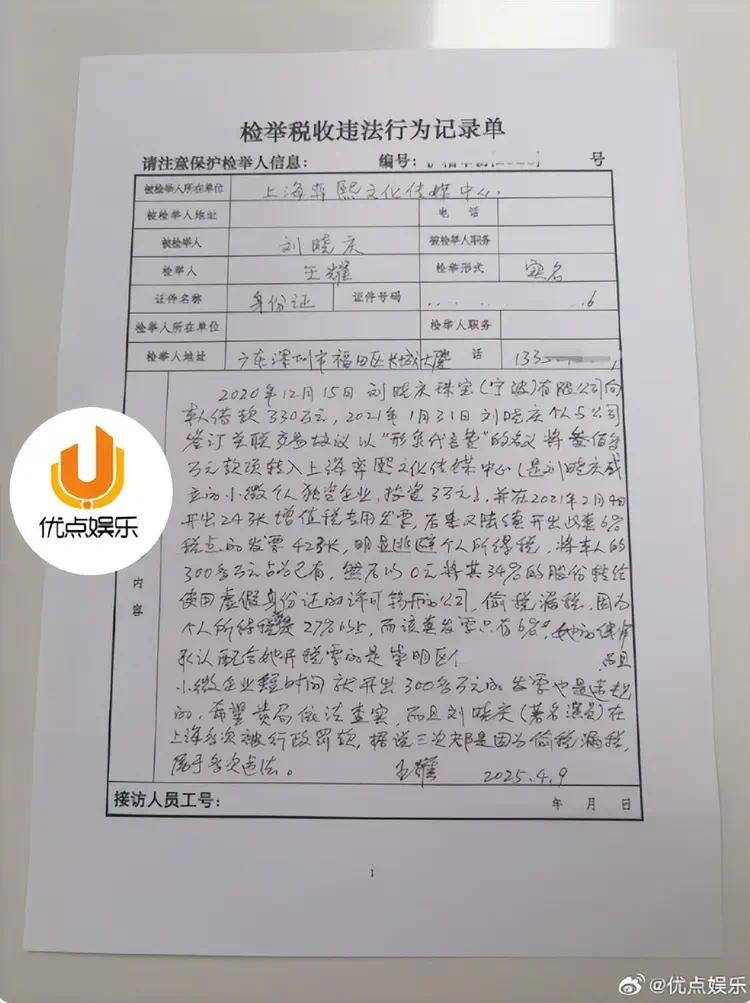 检举税收违法行为记录单
请注意保护检举人信息： 编号： 号
被检举人所在单位 上海弈熙文化传媒中心
被检举人地址 电 话
被检举人 刘晓庆 被检举人职务
检举人 王耀 检举形式 实名
证件名称 身份证 证件号码 6
检举人所在单位 检举人职务
检举人地址 广东深圳市福田区长城大厦 话 133
2020年12月15日刘晓庆珠宝(宁波)有限公司向
本人借款330万元，2021年1月31日刘晓庆个人与公司
签订关联交易协议以“形象代言费”的名义将叁佰多
万元款项转入上海弈熙文化传媒中心(是刘晓庆成
立的小微个人独资企业，投资3万元)，并在2021年2月4日
开出24张增值税专用发票，后来又陆续开出此类6%
税点的发票42张，明显逃避个人所得税，将本人的
300多万元占为己有，然后以0元将其34%的股份转给
使用虚假身份证的许可 的公司，偷税漏税，因为
个人所得税是27% ，而该类发票只有6%，她的律师
承认配合她开税票的是崇明区 而且
小微企业短时间就开出300多万元的发票也是违规
的，希望贵局依法查实，而且刘晓庆(著名演员)在
上海多次被行政罚款，据说三次都是因为偷税漏税，
属于多次违法。 王耀 2025.4.9
内
容
接访人员工号： 年 月 日
1
优点娱乐
@优点娱乐